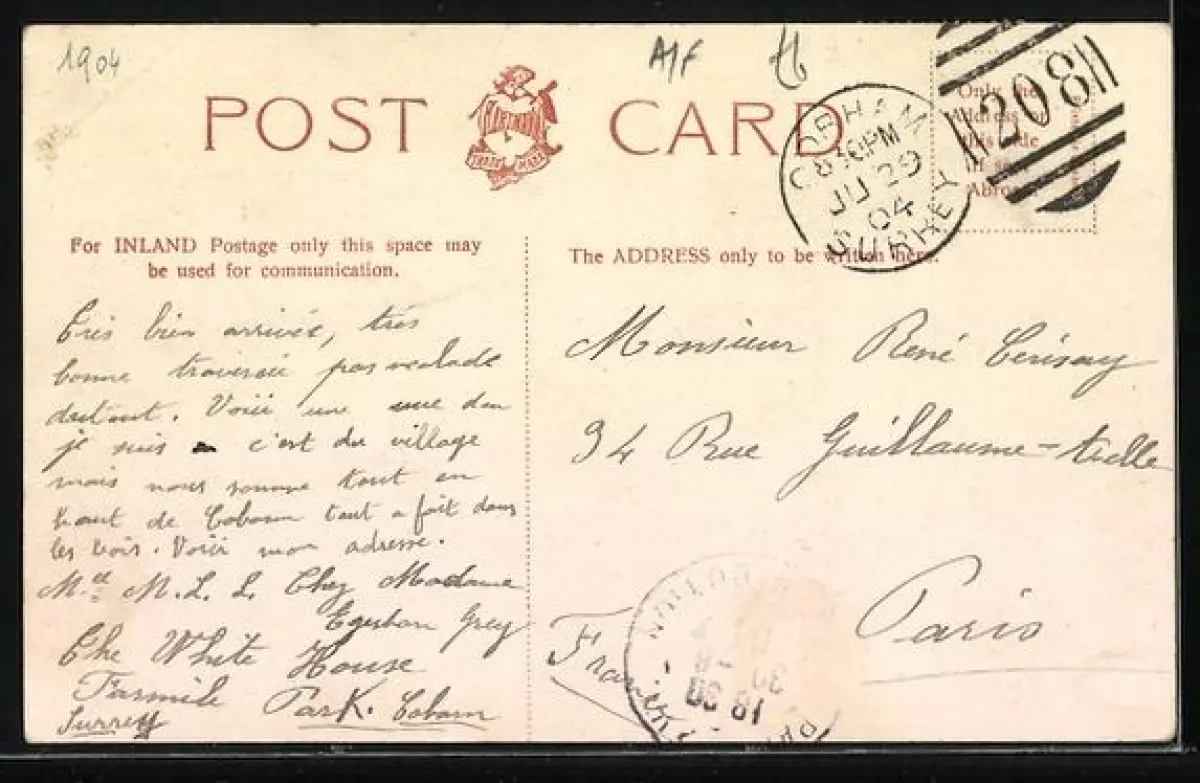 1904
A/F
POST CARD
HARTMANN
TRADE MARK
COBHAM
8 30PM
JU 29
04
SURREY
208
Only the
Address on
this side
if sent
Abroad
For INLAND Postage only this space may
be used for communication.
The ADDRESS only to be written here.
Très bien arrivée, très
bonne traversée pas malade
du tout. Voici une vue d'ou
je suis c'est du village
mais nous somme tout en
haut de Cobam tout a fait dans
les bois. Voici mon adresse.
M. L. L. Chez Madame
Egerton Grey
The White House
Farmile Park. Cobam
Surrey
Monsieur René Cérisay
34 Rue Guillaume-telle
Paris
France
DISTRIBUTION
18 30